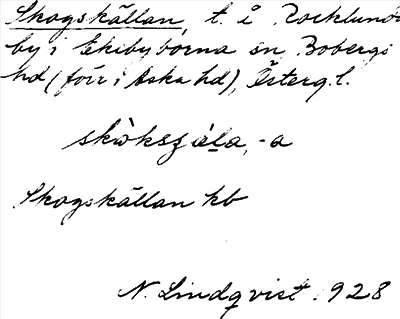 Skogskällan, t. å Rocklunda
by i Ekebyborna sn, Bobergs
hd (förr i Aska hd), Österg. l.
skòkszála, -a
Skogskällan kb
N. Lindqvist 1928